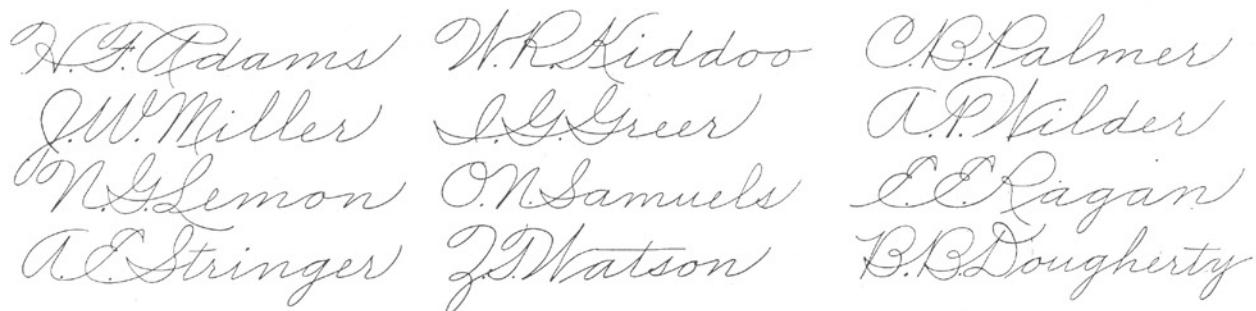 H. F. Adams
J. W. Miller
N. G. Lemon
A. E. Stringer
W. R. Kiddoo
I. G. Greer
O. N. Samuels
Z. T. Watson
C. B. Palmer
A. P. Wilder
E. E. Ragan
B. B. Dougherty